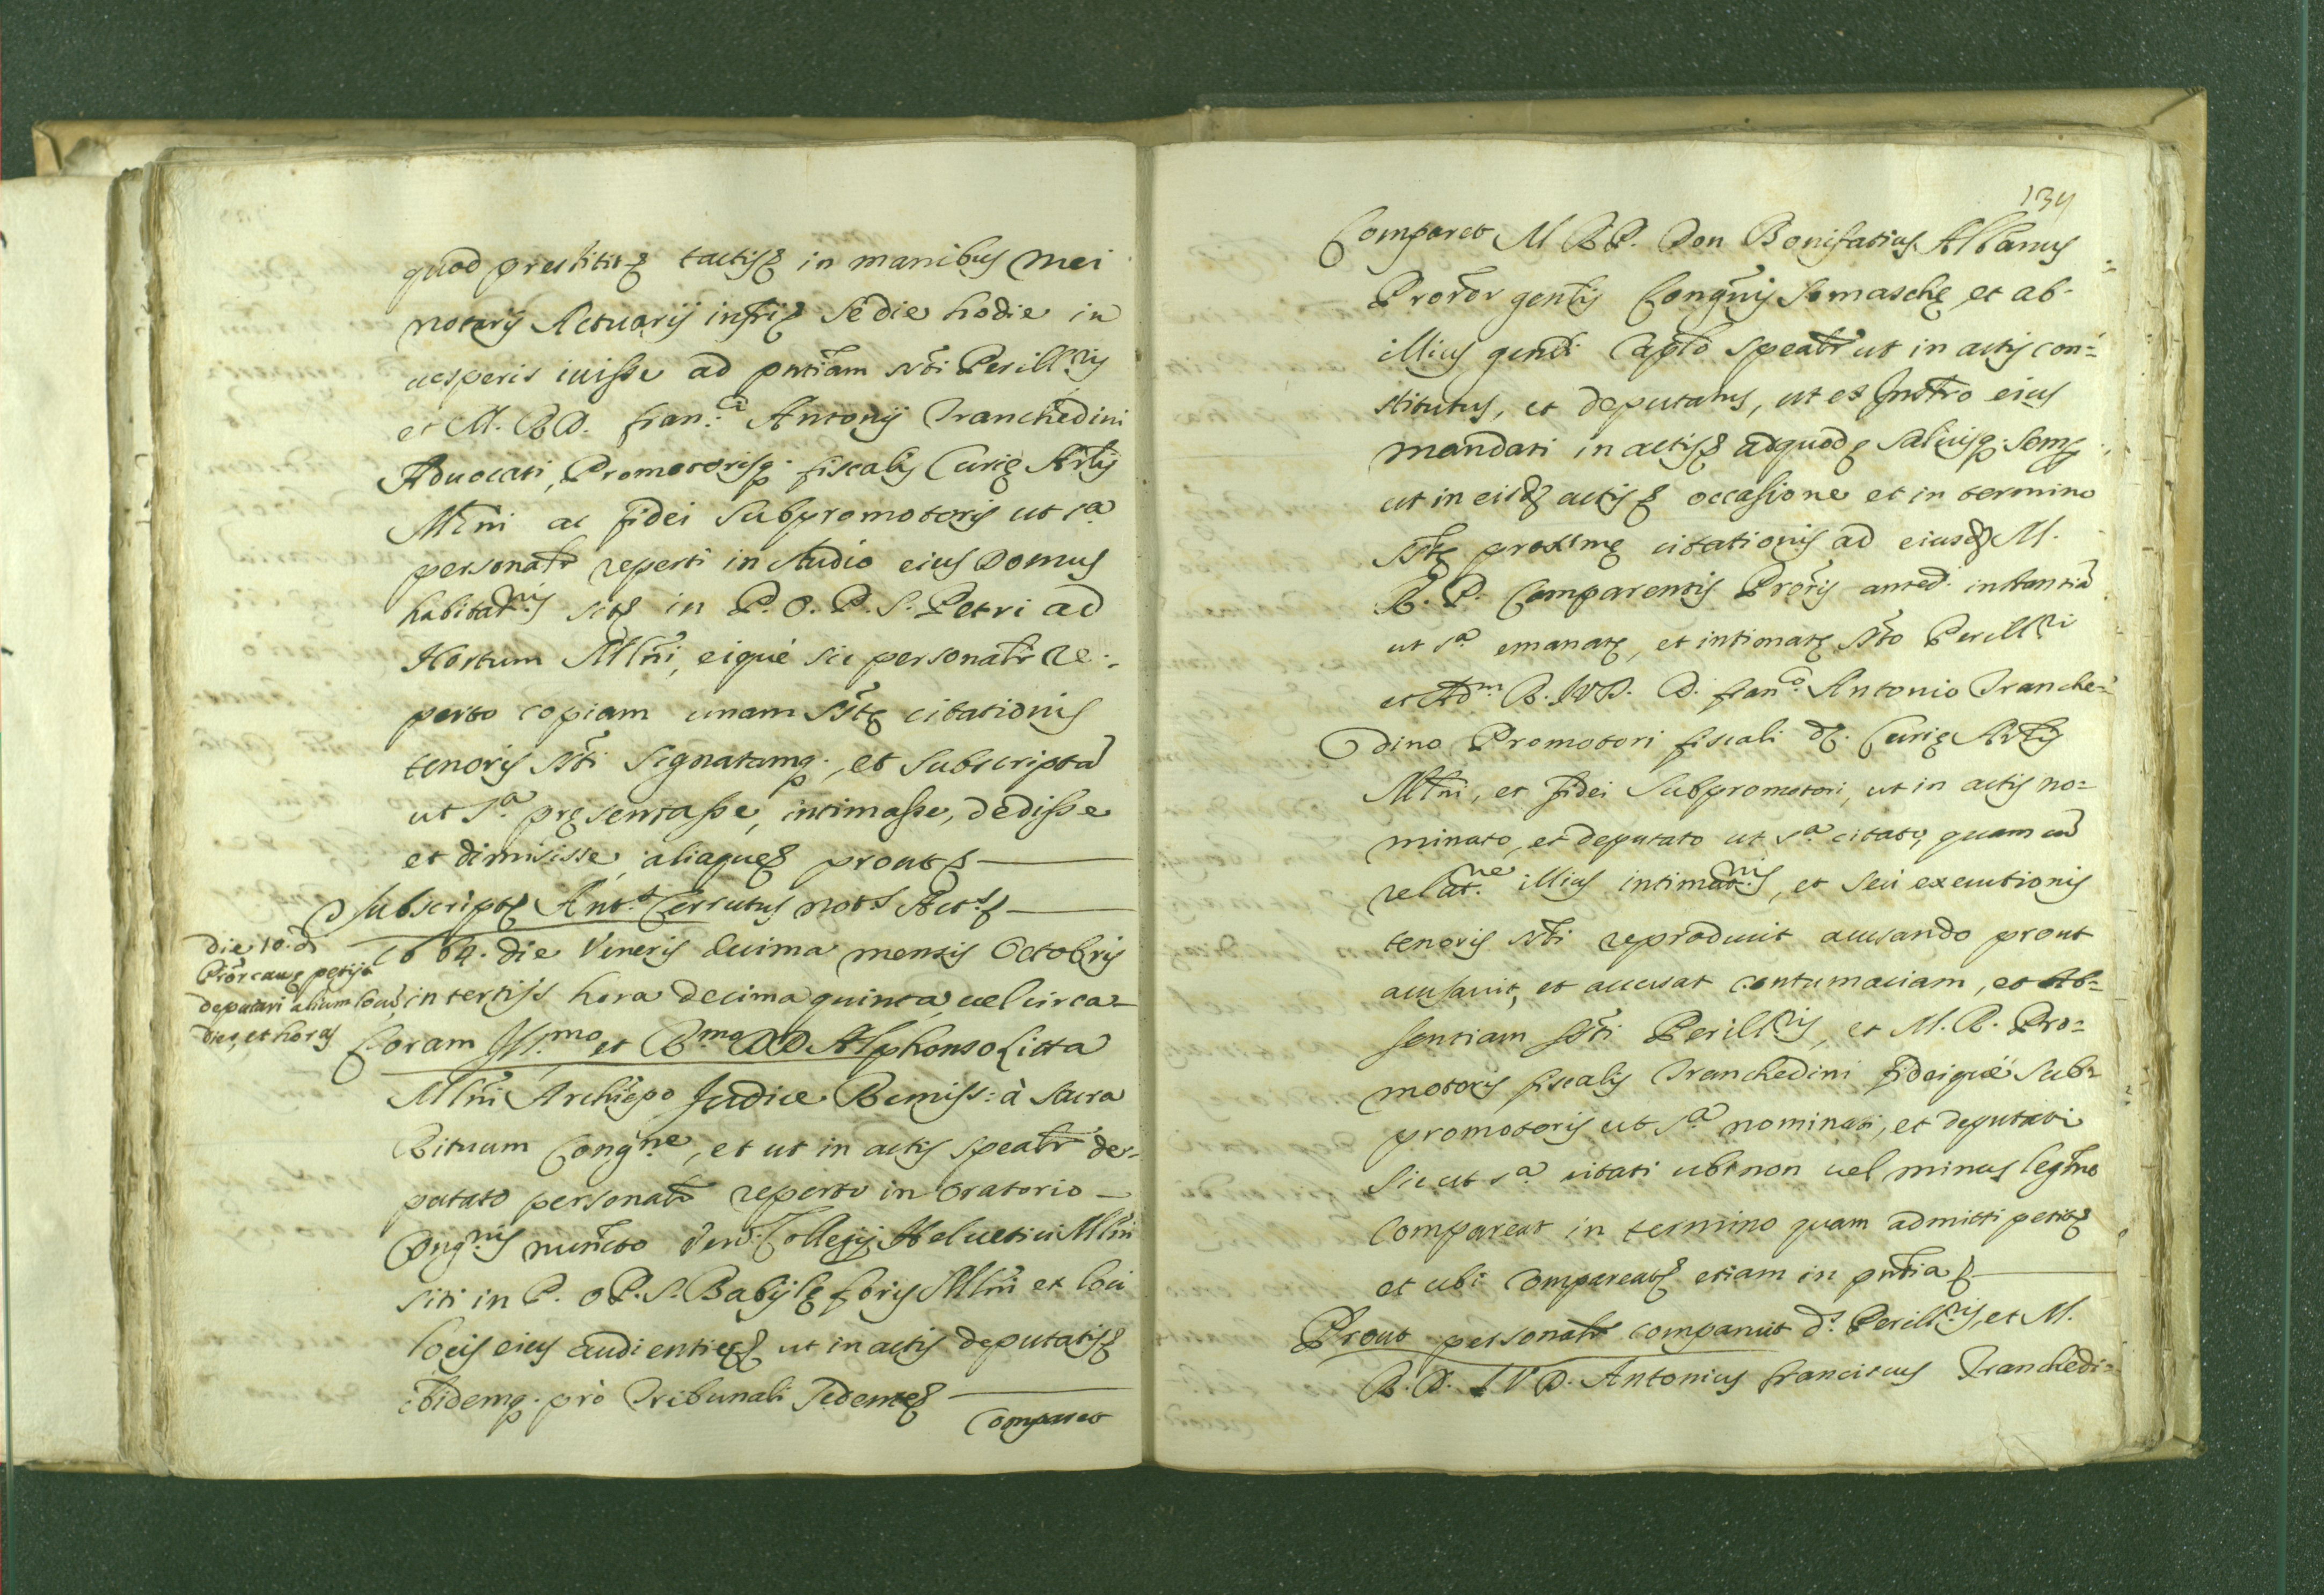 quod prestitit tactis in manibus mei
notarij Actuarij infrij se die hodie in
uesperis iuisse ad pntiam sti Perill.ris
et M. R. D. Fran.ci Antonij Tranchedini
Aduocati, Promotorisq. fiscalis Curię Arlis
Mlni ac fidei Subpromotoris ut s.a
personalr reperti in studio eius Domus
habitat.nis sitę in P. O. P. S. Petri ad
Hortum Mlni, eique sic personalr re-
perto copiam unam sstę citationis
tenoris ssti signatamq., et subscripta
ut s.a pręsentasse, intimasse, dedisse
et dimisisse, aliaque prout
Subscript Ant.s Cerrutus not.s Act.s
die 10. d.
Prōr causę petijt
deputari alium locū
dies, et horas
1664. die Veneris decima mensis Octobris
in tertijs hora decima quinta, uel circa
Coram Ill.mo et R.mo DD Alphonso Litta
Mlni Archiepo Judice Remiss: à Sacra
Rituum Cong.ne, et ut in actis spealr de-
putato personalr reperto in Oratorio
Cong.nis nuncto Ven. Collegij Helvetici Mlni
siti in P. O P. S. Babylę foris Mlni et loci
locis eius audientię ut in actis deputatis
ibidemq. pro Tribunali sedente
Comparet
134
Comparet M R P. Don Bonifatius Albanus
Prorōr gentis Congnis Somaschę et ab
illius genli Caplo spealr ut in actis con-
stitutus, et deputatus, ut ex Instro eius
mandati in actis adquod saluisq. semp.
ut in eisd actis occasione et in termino
sstę proximę citationis ad eiusd M.
R. P. Comparentis Prōris anted. instantiā
ut s.a emanatę, et intimatę ssto Perill.ri
et Adm. R. J.V.D. D. Fran.co Antonio Tranche-
dino Promotori fiscali d. Curię Arlis
Mlni, et fidei Subpromotori, ut in actis no-
minato, et deputato ut s.a citato, quam cū
relat.ne illius intimat.nis, et seu executionis
tenoris ssti reproduxit acusando prout
acusauit, et accusat contumaciam, et Ab-
sentiam ssti Perill.ris, et M. R. Pro-
motoris fiscalis Tranchedini fideique Sub-
promotoris ut s.a nominati, et deputati
sic ut s.a citati ubi non uel minus legmo
Compareat in termino quam admitti petit
et ubi Compareat etiam in pntia
Prout personalr comparuit d.s Perill.ris, et M.
R. D. J V D. Antonius Franciscus Tranchedi-